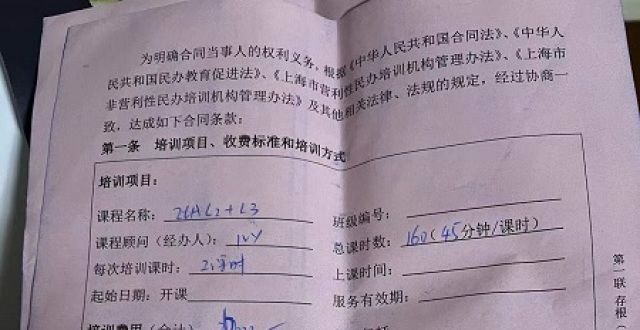 为明确合同当事人的权利义务，根据《中华人民共和国合同法》、《中华人
民共和国民办教育促进法》、《上海市营利性民办培训机构管理办法》、《上海市
非营利性民办培训机构管理办法》及其他相关法律、法规的规定，经过协商一
致，达成如下合同条款：
第一条 培训项目、收费标准和培训方式
培训项目：
课程名称： L2+L3
班级编号：
课程顾问（经办人）：
总课时数：160（45分钟/课时）
每次培训课时：2课时
上课时间：
起始日期：开课
服务有效期：
培训费用（合计）
第一联 存根